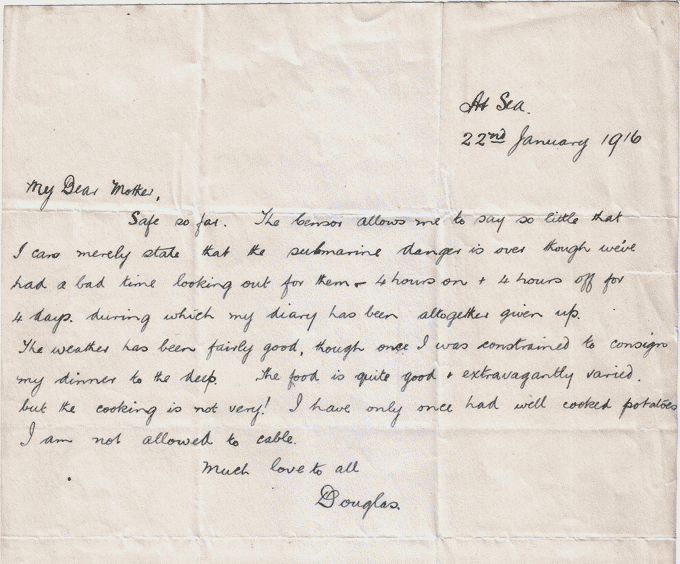 At Sea.
22nd January 1916
My Dear Mother,
Safe so far. The Censor allows me to say so little that
I can merely state that the submarine danger is over though we've
had a bad time looking out for them - 4 hours on + 4 hours off for
4 days. during which my diary has been altogether given up.
The weather has been fairly good, though once I was constrained to consign
my dinner to the deep. The food is quite good + extravagantly varied.
but the cooking is not very! I have only once had well cooked potatoes
I am not allowed to cable.
Much love to all
Douglas.